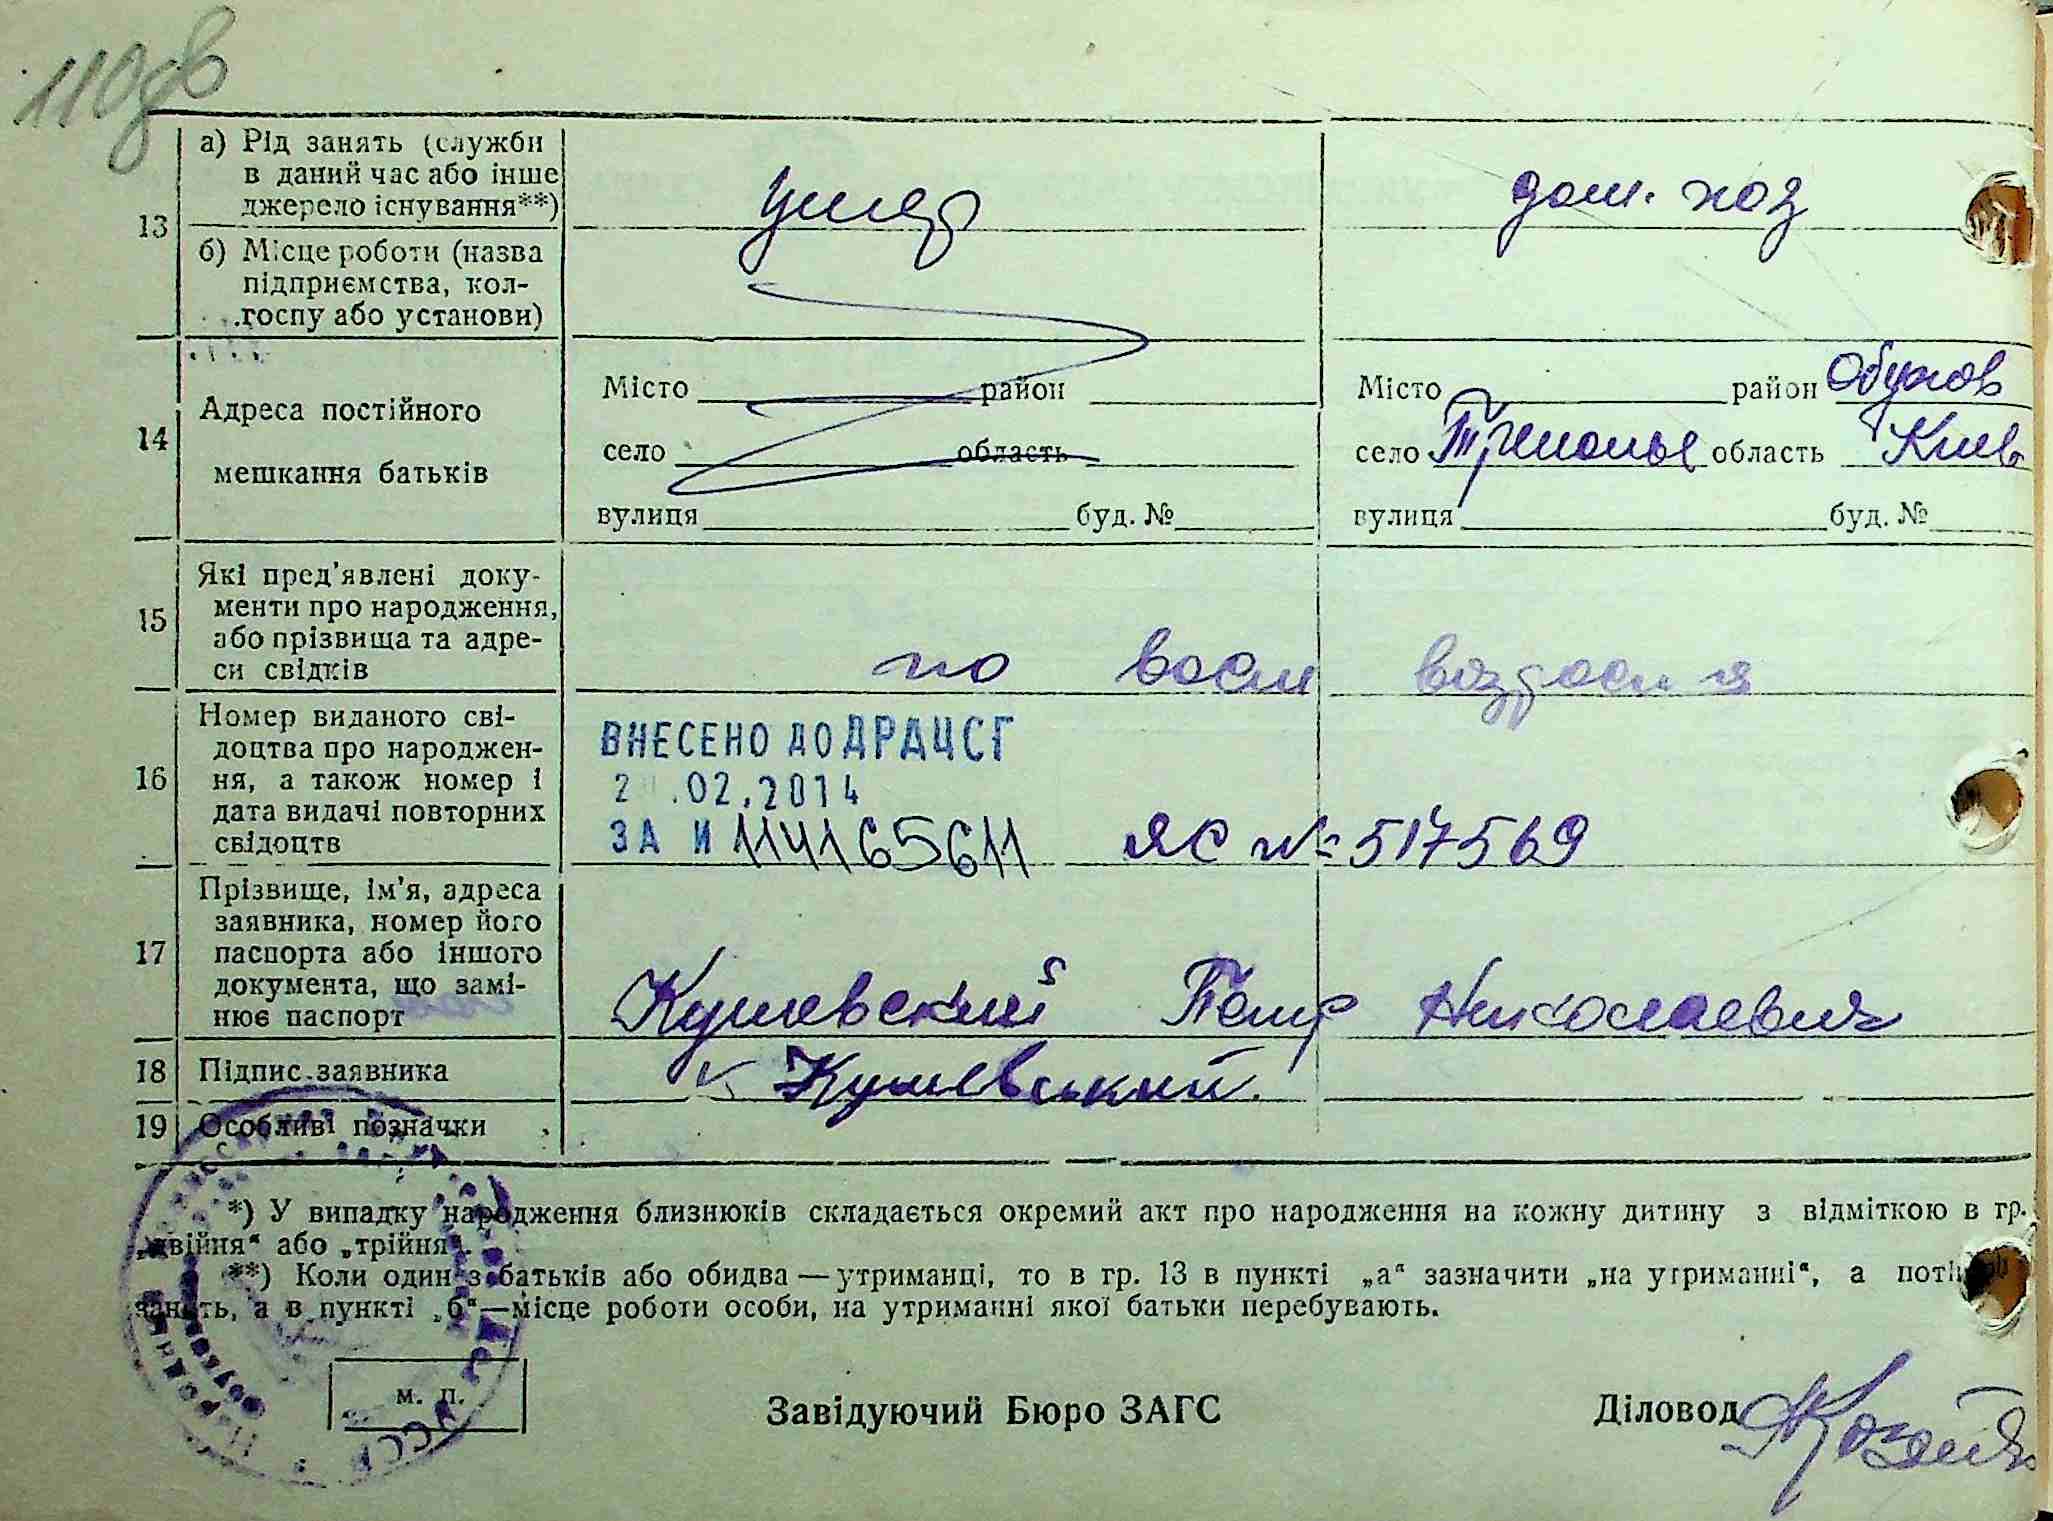 110зв
13
а) Рід занять (служби
в даний час або інше
джерело існування**)
умер
дом. хоз
б) Місце роботи (назва
підприємства, кол-
госпу або установи)
14
Адреса постійного
мешкання батьків
Місто район
село область
вулиця буд. №
Місто район Обухов
село Триполье область Киев
вулиця буд. №
15
Які пред’явлені доку-
менти про народження,
або прізвища та адре-
си свідків
по восп
16
Номер виданого сві-
доцтва про народжен-
ня, а також номер і
дата видачі повторних
свідоцтв
ВНЕСЕНО ДО ДРАЦСГ
2 .02.2014
ЗА № 114165611 ЯС № 517569
17
Прізвище, ім’я, адреса
заявника, номер його
паспорта або іншого
документа, що замі-
нює паспорт
Петр Николаевич
18
Підпис заявника
19
Особливі позначки
*) У випадку народження близнюків складається окремий акт про народження на кожну дитину з відміткою в гр.
„двійня“ або „трійня“.
**) Коли один з батьків або обидва — утриманці, то в гр. 13 в пункті „а“ зазначити „на утриманні“, а
занять, а в пункті „б“—місце роботи особи, на утриманні якої батьки перебувають.
м. п.
Завідуючий Бюро ЗАГС
Діловод
УССР